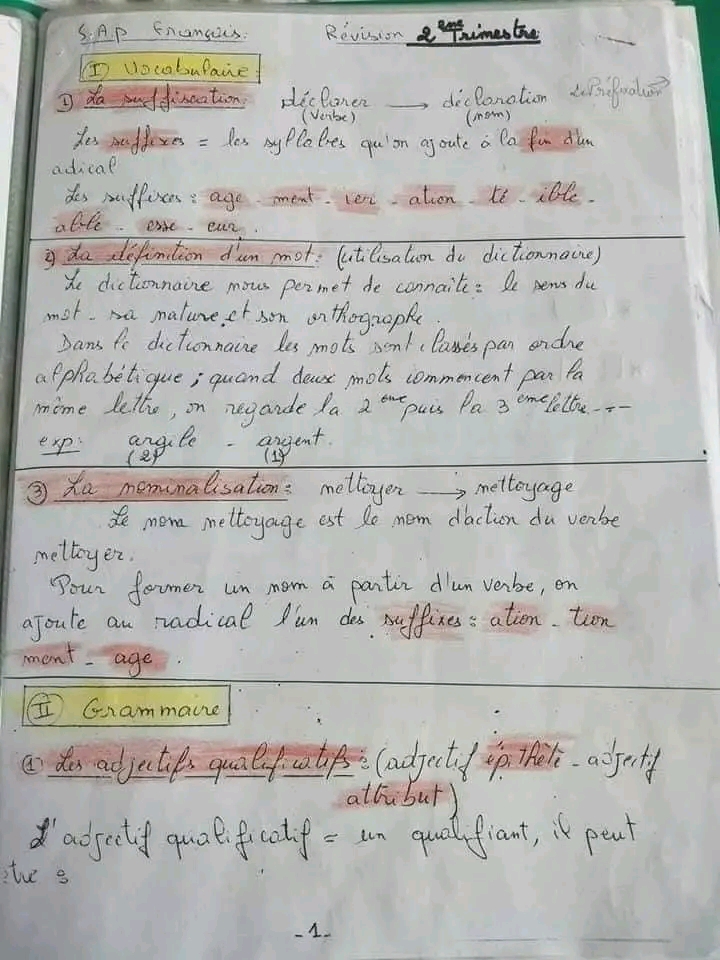 5.A.p Français. Révision 2ème Trimestre
I Vocabulaire:
1) La suffixation: déclarer → déclaration La Préfixation →
(verbe) (nom)
Les suffixes = les syllabes qu'on ajoute à la fin d'un
adical
Les suffixes: age - ment - ier - ation - té - ible -
able - esse - eur.
2) La définition d'un mot: (utilisation du dictionnaire)
Le dictionnaire nous permet de connaite: le sens du
mot - sa nature et son orthographe.
Dans le dictionnaire les mots sont classés par ordre
alphabétique; quand deux mots commencent par la
même lettre, on regarde la 2ème puis la 3ème lettre ---
exp: argile - argent.
(2) (1)
3 La nominalisation: nettoyer → nettoyage
Le nom nettoyage est le nom d'action du verbe
nettoyer.
Pour former un nom à partir d'un verbe, on
ajoute au radical l'un des suffixes: ation - tion
ment - age.
II Grammaire
1 Les adjectifs qualificatifs: (adjectif épithète - adjectif
attribut)
L'adjectif qualificatif = un qualifiant, il peut
être :
-1-